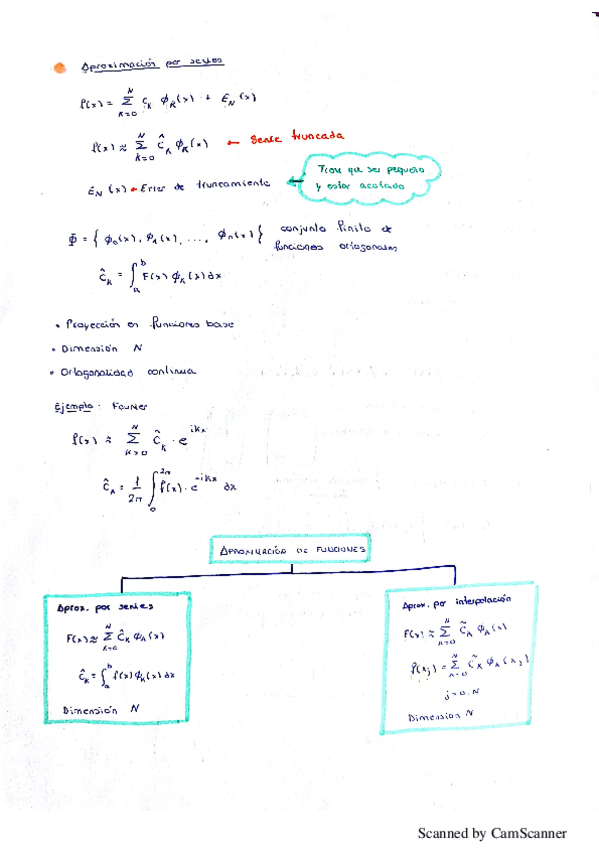 Aproximación por series
f(x) = Σ_{k=0}^{N} c_k φ_k(x) + E_N(x)
f(x) ≈ Σ_{k=0}^{N} ĉ_k φ_k(x) ← Serie truncada
E_N(x) ← Error de truncamiento ← Tiene que ser pequeño
y estar acotado
Φ = { φ_0(x), φ_1(x), ..., φ_n(x) } conjunto finito de
funciones ortogonales
ĉ_k = ∫_a^b F(x) φ_k(x) dx
• Proyección en funciones base
• Dimensión N
• Ortogonalidad continua
Ejemplo: Fourier
f(x) ≈ Σ_{k=0}^{N} ĉ_k · e^{ikx}
ĉ_k = 1/2π ∫_0^{2π} f(x) · e^{-ikx} dx
APROXIMACIÓN DE FUNCIONES
Aprox. por series
F(x) ≈ Σ_{k=0}^{N} ĉ_k φ_k(x)
ĉ_k = ∫_a^b f(x) φ_k(x) dx
Dimensión N
Aprox. por interpolación
F(x) ≈ Σ_{k=0}^{N} c̃_k φ_k(x)
f(x_j) = Σ_{k=0}^{N} c̃_k φ_k(x_j)
j=0..N
Dimensión N
Scanned by CamScanner